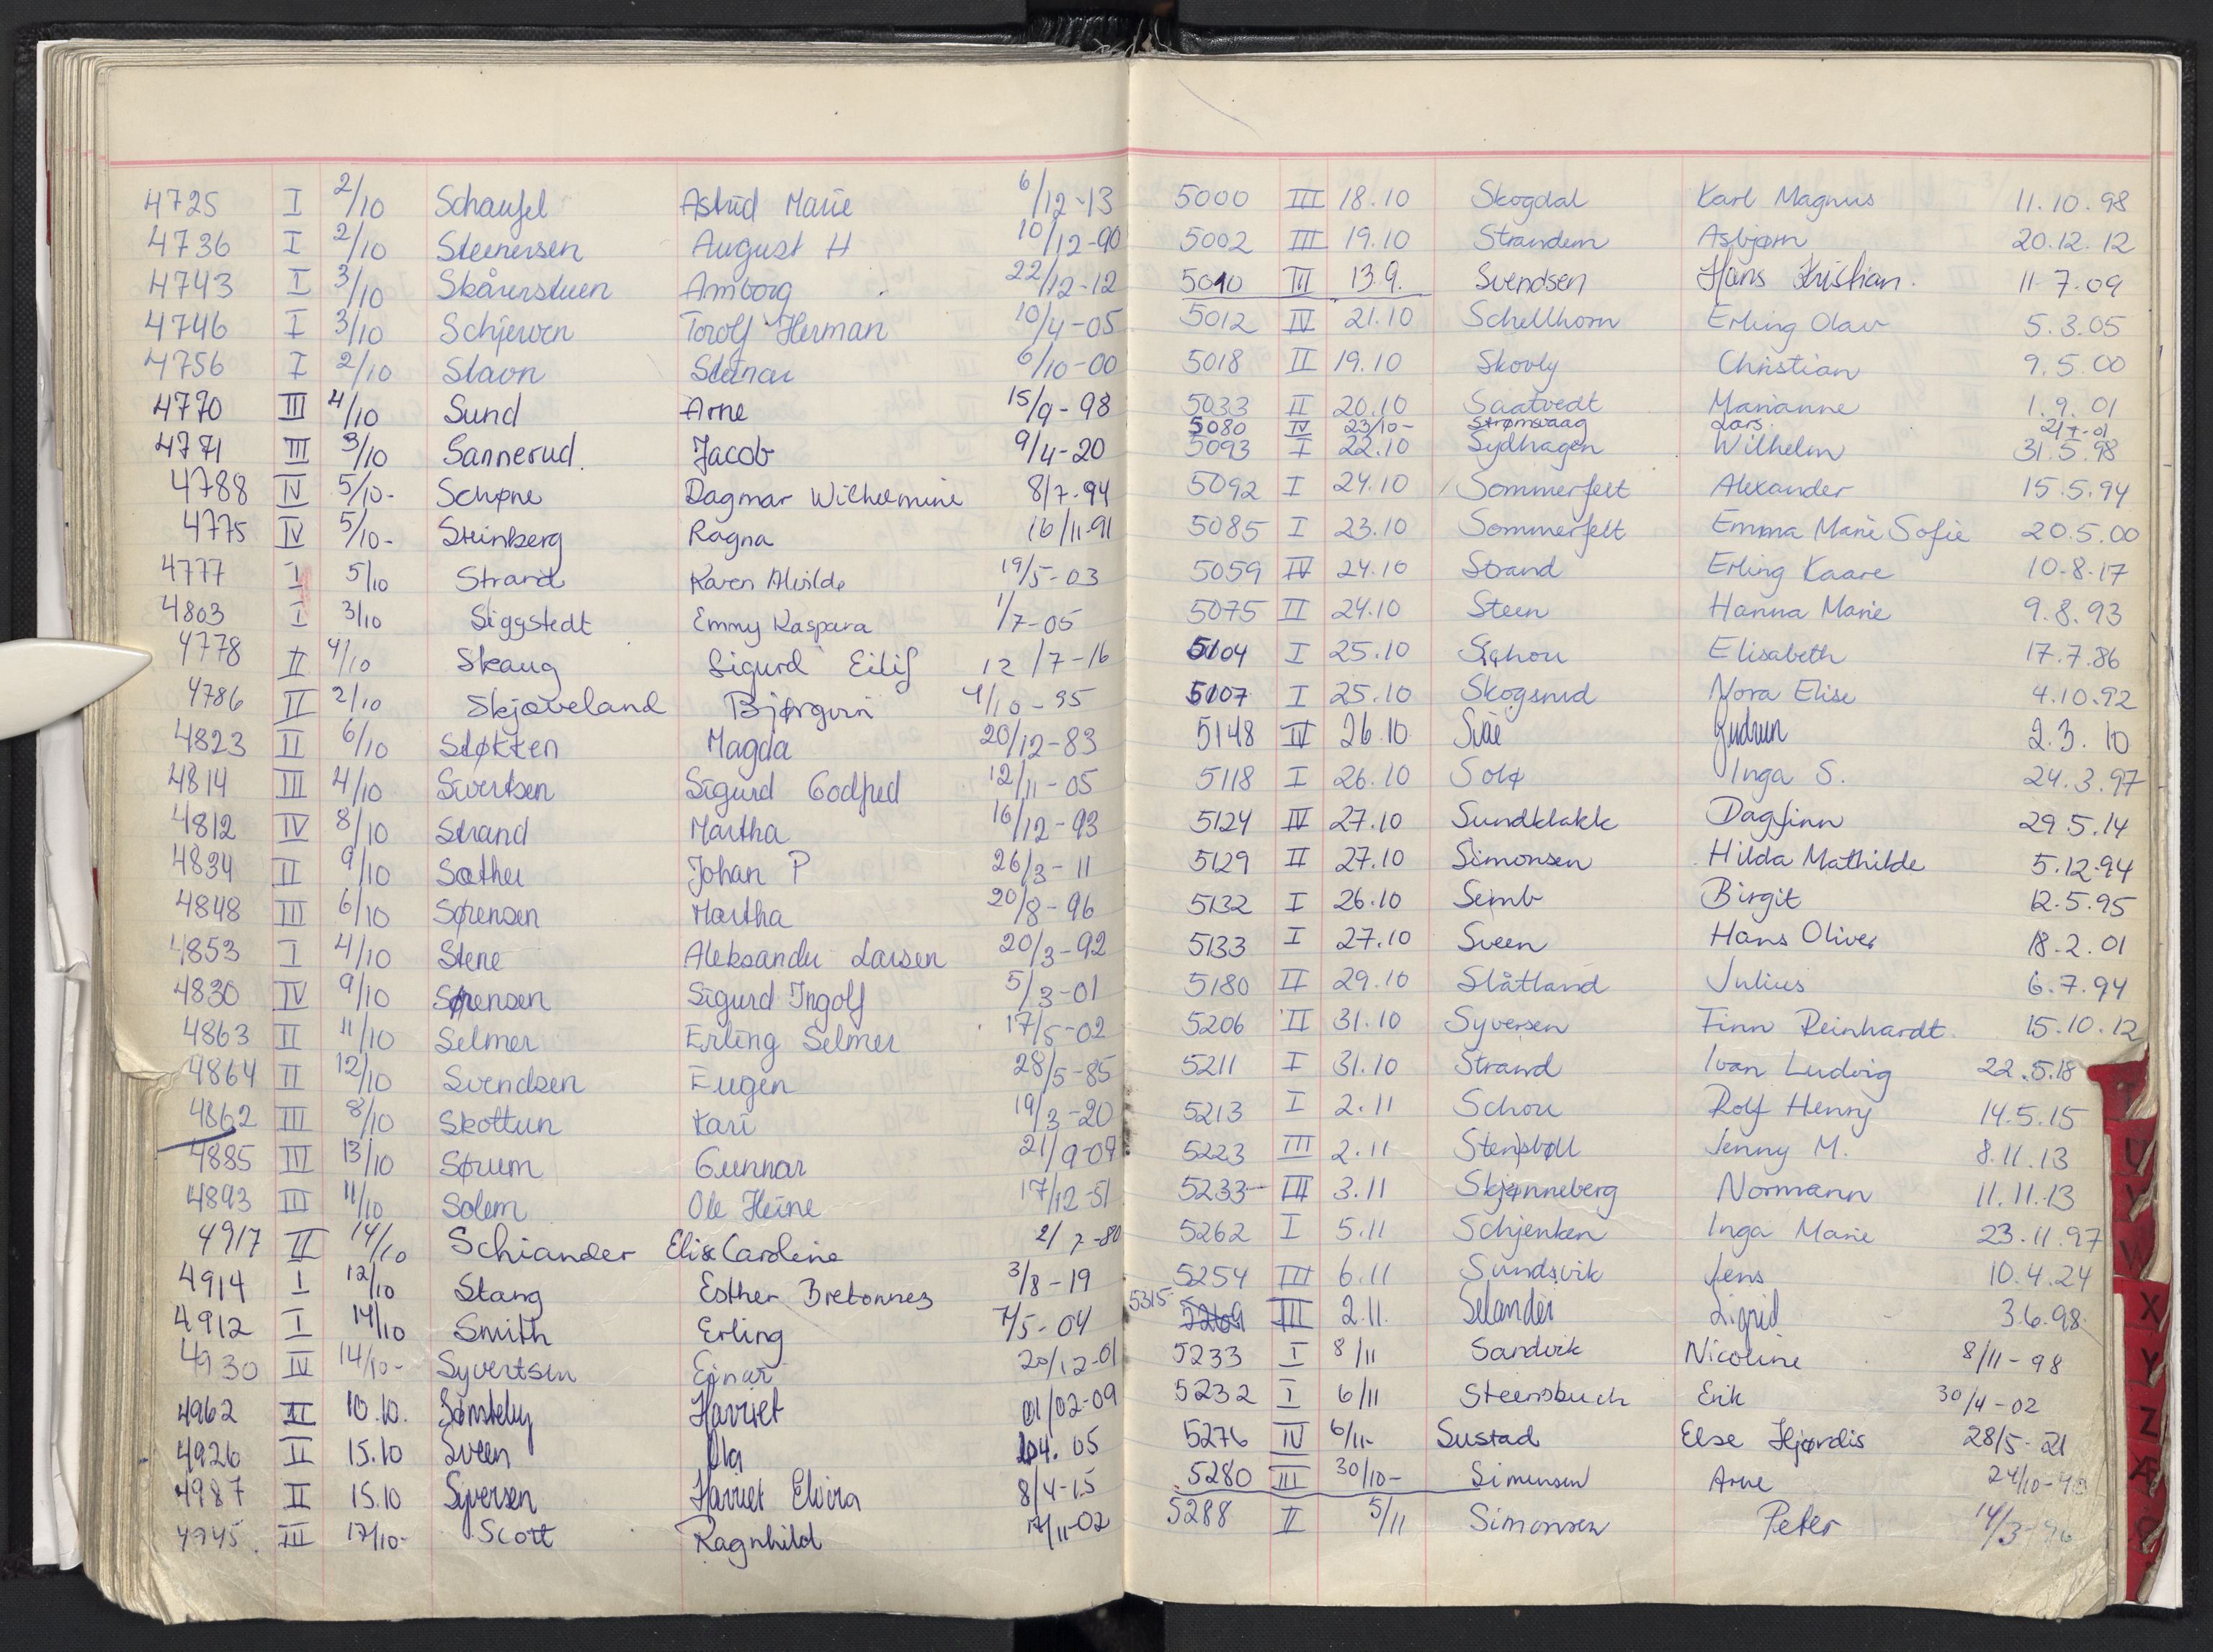 4725 I 2/10 Schaufel Astrid Marie 6/12-13
4736 I 2/10 Steenersen August H 10/12-90
4743 I 3/10 Skårerstuen Amborg 22/12-12
4746 I 3/10 Schjerven Torolf Herman 10/4-05
4756 I 2/10 Stavn Steinar 6/10-00
4770 III 4/10 Sund Arne 15/9-98
4771 III 3/10 Sannerud Jacob 9/4-20
4788 IV 5/10- Schøne Dagmar Wilhelmine 8/7-94
4775 IV 5/10- Steinberg Ragna 16/11-91
4777 I 5/10 Strand Karen Alvilde 19/5-03
4803 I 3/10 Siggstedt Emmy Kaspara 1/7-05
4778 II 4/10 Skaug Sigurd Eilif 12/7-16
4786 II 2/10 Skjæveland Bjørgvin 4/10-95
4823 II 6/10 Støkken Magda 20/12-83
4814 III 4/10 Sivertsen Sigurd Godfred 12/11-05
4812 IV 8/10 Strand Martha 16/12-93
4834 II 9/10 Sæther Johan P 26/3-11
4848 III 6/10 Sørensen Martha 20/8-96
4853 I 4/10 Stene Aleksander Larsen 20/3-92
4830 IV 9/10 Sørensen Sigurd Ingolf 5/3-01
4863 II 11/10 Selmer Erling Selmer 17/5-02
4864 II 12/10 Svendsen Eugen 28/5-85
4862 III 8/10 Skottun Kari 19/3-20
4885 III 13/10 Sørum Gunnar 21/9-07
4893 III 11/10 Solem Ole Heine 17/12-51
4917 II 14/10 Schiander Elise Caroline 2/7-80
4914 I 12/10 Stang Esther Bretonnes 3/8-19
4912 I 14/10 Smith Erling 7/5-04
4930 IV 14/10- Syvertsen Einar 20/12-01
4962 II 10.10. Sønsteby Harriet 01/02-09
4926 II 15.10 Sveen Ola 4.05
4987 II 15.10 Syversen Harriet Elvira 8/4-15
4945 III 17/10- Scott Ragnhild 17/11-02
5000 III 18.10 Skogdal Karl Magnus 11.10.98
5002 III 19.10 Strandem Asbjørn 20.12.12
5010 III 13.9. Svendsen Hans Kristian. 11-7.09
5012 IV 21.10 Schellhorn Erling Olav 5.3.05
5018 II 19.10 Skovly Christian 9.5.00
5033 II 20.10 Saatvedt Marianne 1.9.01
5080 IV 23/10- Strømsvaag Lars 2/7-01
5093 I 22.10 Sydhagen Wilhelm 31.5.98
5092 I 24.10 Sommerfelt Alexander 15.5.94
5085 I 23.10 Sommerfelt Emma Marie Sofie 20.5.00
5059 IV 24.10 Strand Erling Kaare 10-8-17
5075 II 24.10 Steen Hanna Marie 9.8.93
5104 I 25.10 Schou Elisabeth 17.7.86
5107 I 25.10 Skogsrud Nora Elise 4.10.92
5148 IV 26.10 Siae Gudrun 2.3.10
5118 I 26.10 Solø Inga S. 24.3.97
5124 IV 27.10 Sundklakk Dagfinn 29.5.14
5129 II 27.10 Simonsen Hilda Mathilde 5.12.94
5132 I 26.10 Semb Birgit 12.5.95
5133 I 27.10 Sveen Hans Oliver 18.2.01
5180 II 29.10 Slåtland Julius 6.7.94
5206 II 31.10 Syversen Finn Reinhardt. 15.10.12
5211 I 31.10 Strand Ivan Ludvig 22.5.18
5213 I 2.11 Schou Rolf Henry 14.5.15
5223 III 2.11 Stensbøll Jenny M. 8.11.13
5233 III 3.11 Skjønneberg Normann 11.11.13
5262 I 5.11 Schjenken Inga Marie 23.11.97
5254 III 6.11 Sundsvik Jens 10.4.24
5315 5269 III 2.11. Selander Sigrid 3.6.98.
5233 I 8/11 Sandvik Nicoline 8/11-98
5232 I 6/11 Steensbuch Erik 30/4-02
5276 IV 6/11- Sustad Else Hjørdis 28/5-21
5280 III 30/10- Simensen Arne 24/10-
5288 II 5/11 Simonsen Peter 14/3-
T
U
V
W
X
Y
Z
Æ